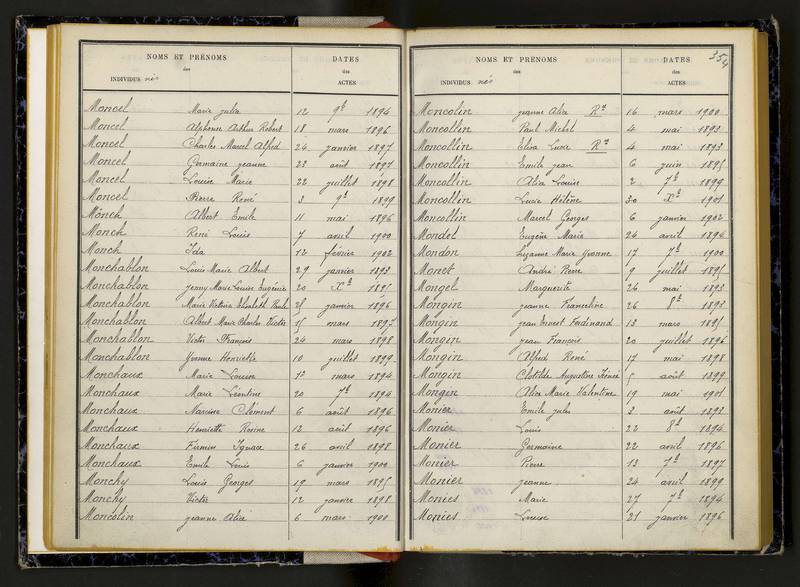 NOMS ET PRÉNOMS
des
INDIVIDUS nés
DATES
des
ACTES
Moncel Marie Julia 12 9b 1894
Moncel Alphonse Arthur Robert 18 mars 1896
Moncel Charles Marcel Alfred 24 janvier 1897
Moncel Germaine Jeanne 23 août 1897
Moncel Louise Marie 22 juillet 1898
Moncel Pierre René 3 9b 1899
Monch Albert Emile 11 mai 1896
Monch René Louis 7 avril 1900
Monch Ida 12 février 1902
Monchablon Louis Marie Albert 29 janvier 1893
Monchablon Jenny Marie Louise Eugénie 20 Xb 1895
Monchablon Marie Victoire Elisabeth Paule 25 janvier 1896
Monchablon Albert Marie Charles Victor 15 mars 1897
Monchablon Victor François 24 mars 1898
Monchablon Yvonne Henriette 10 juillet 1899
Monchaux Marie Louise 13 mars 1894
Monchaux Marie Léontine 20 7b 1894
Monchaux Narcisse Clément 6 août 1896
Monchaux Henriette Rosine 12 août 1896
Monchaux Firmin Ignace 26 avril 1898
Monchaux Emile Louis 6 janvier 1900
Monchy Louis Georges 19 mars 1895
Monchy Victor 12 janvier 1898
Moncolin Jeanne Alice 6 mars 1900
354
NOMS ET PRÉNOMS
des
INDIVIDUS nés
DATES
des
ACTES
Moncolin Jeanne Alice Ron 16 mars 1900
Moncollin Paul Michel 4 mai 1893
Moncollin Elisa Lucie Ron 4 mai 1893
Moncollin Emile Jean 6 juin 1895
Moncollin Alice Louise 2 7b 1899
Moncollin Lucie Hélène 30 Xb 1901
Moncollin Marcel Georges 6 janvier 1902
Mondel Eugène Marie 24 avril 1894
Mondon Suzanne Marie Yvonne 17 7b 1900
Monet André Pierre 9 juillet 1895
Mongel Marguerite 26 mai 1893
Mongin Jeanne Franceline 26 8b 1893
Mongin Jean Ernest Ferdinand 13 mars 1895
Mongin Jean François 20 juillet 1896
Mongin Alfred René 17 mai 1898
Mongin Clotilde Augustine Irénée 5 août 1899
Mongin Alice Marie Valentine 19 mai 1901
Monier Emile Jules 3 août 1893
Monier Louis 22 8b 1894
Monier Germaine 22 avril 1896
Monier Pierre 13 7b 1897
Monier Jeanne 24 avril 1899
Moniès Marie 27 7b 1894
Moniès Louise 21 janvier 1896